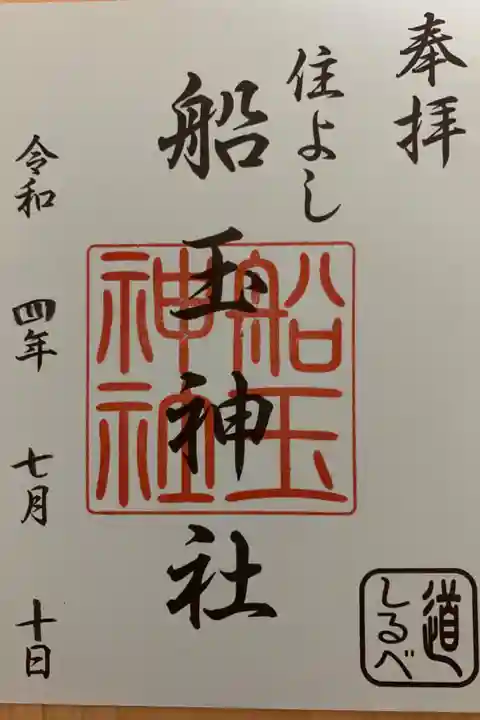 奉拝
住よし
船玉神社
船玉
神社
令和 四年 七月 十日
道
しるべ